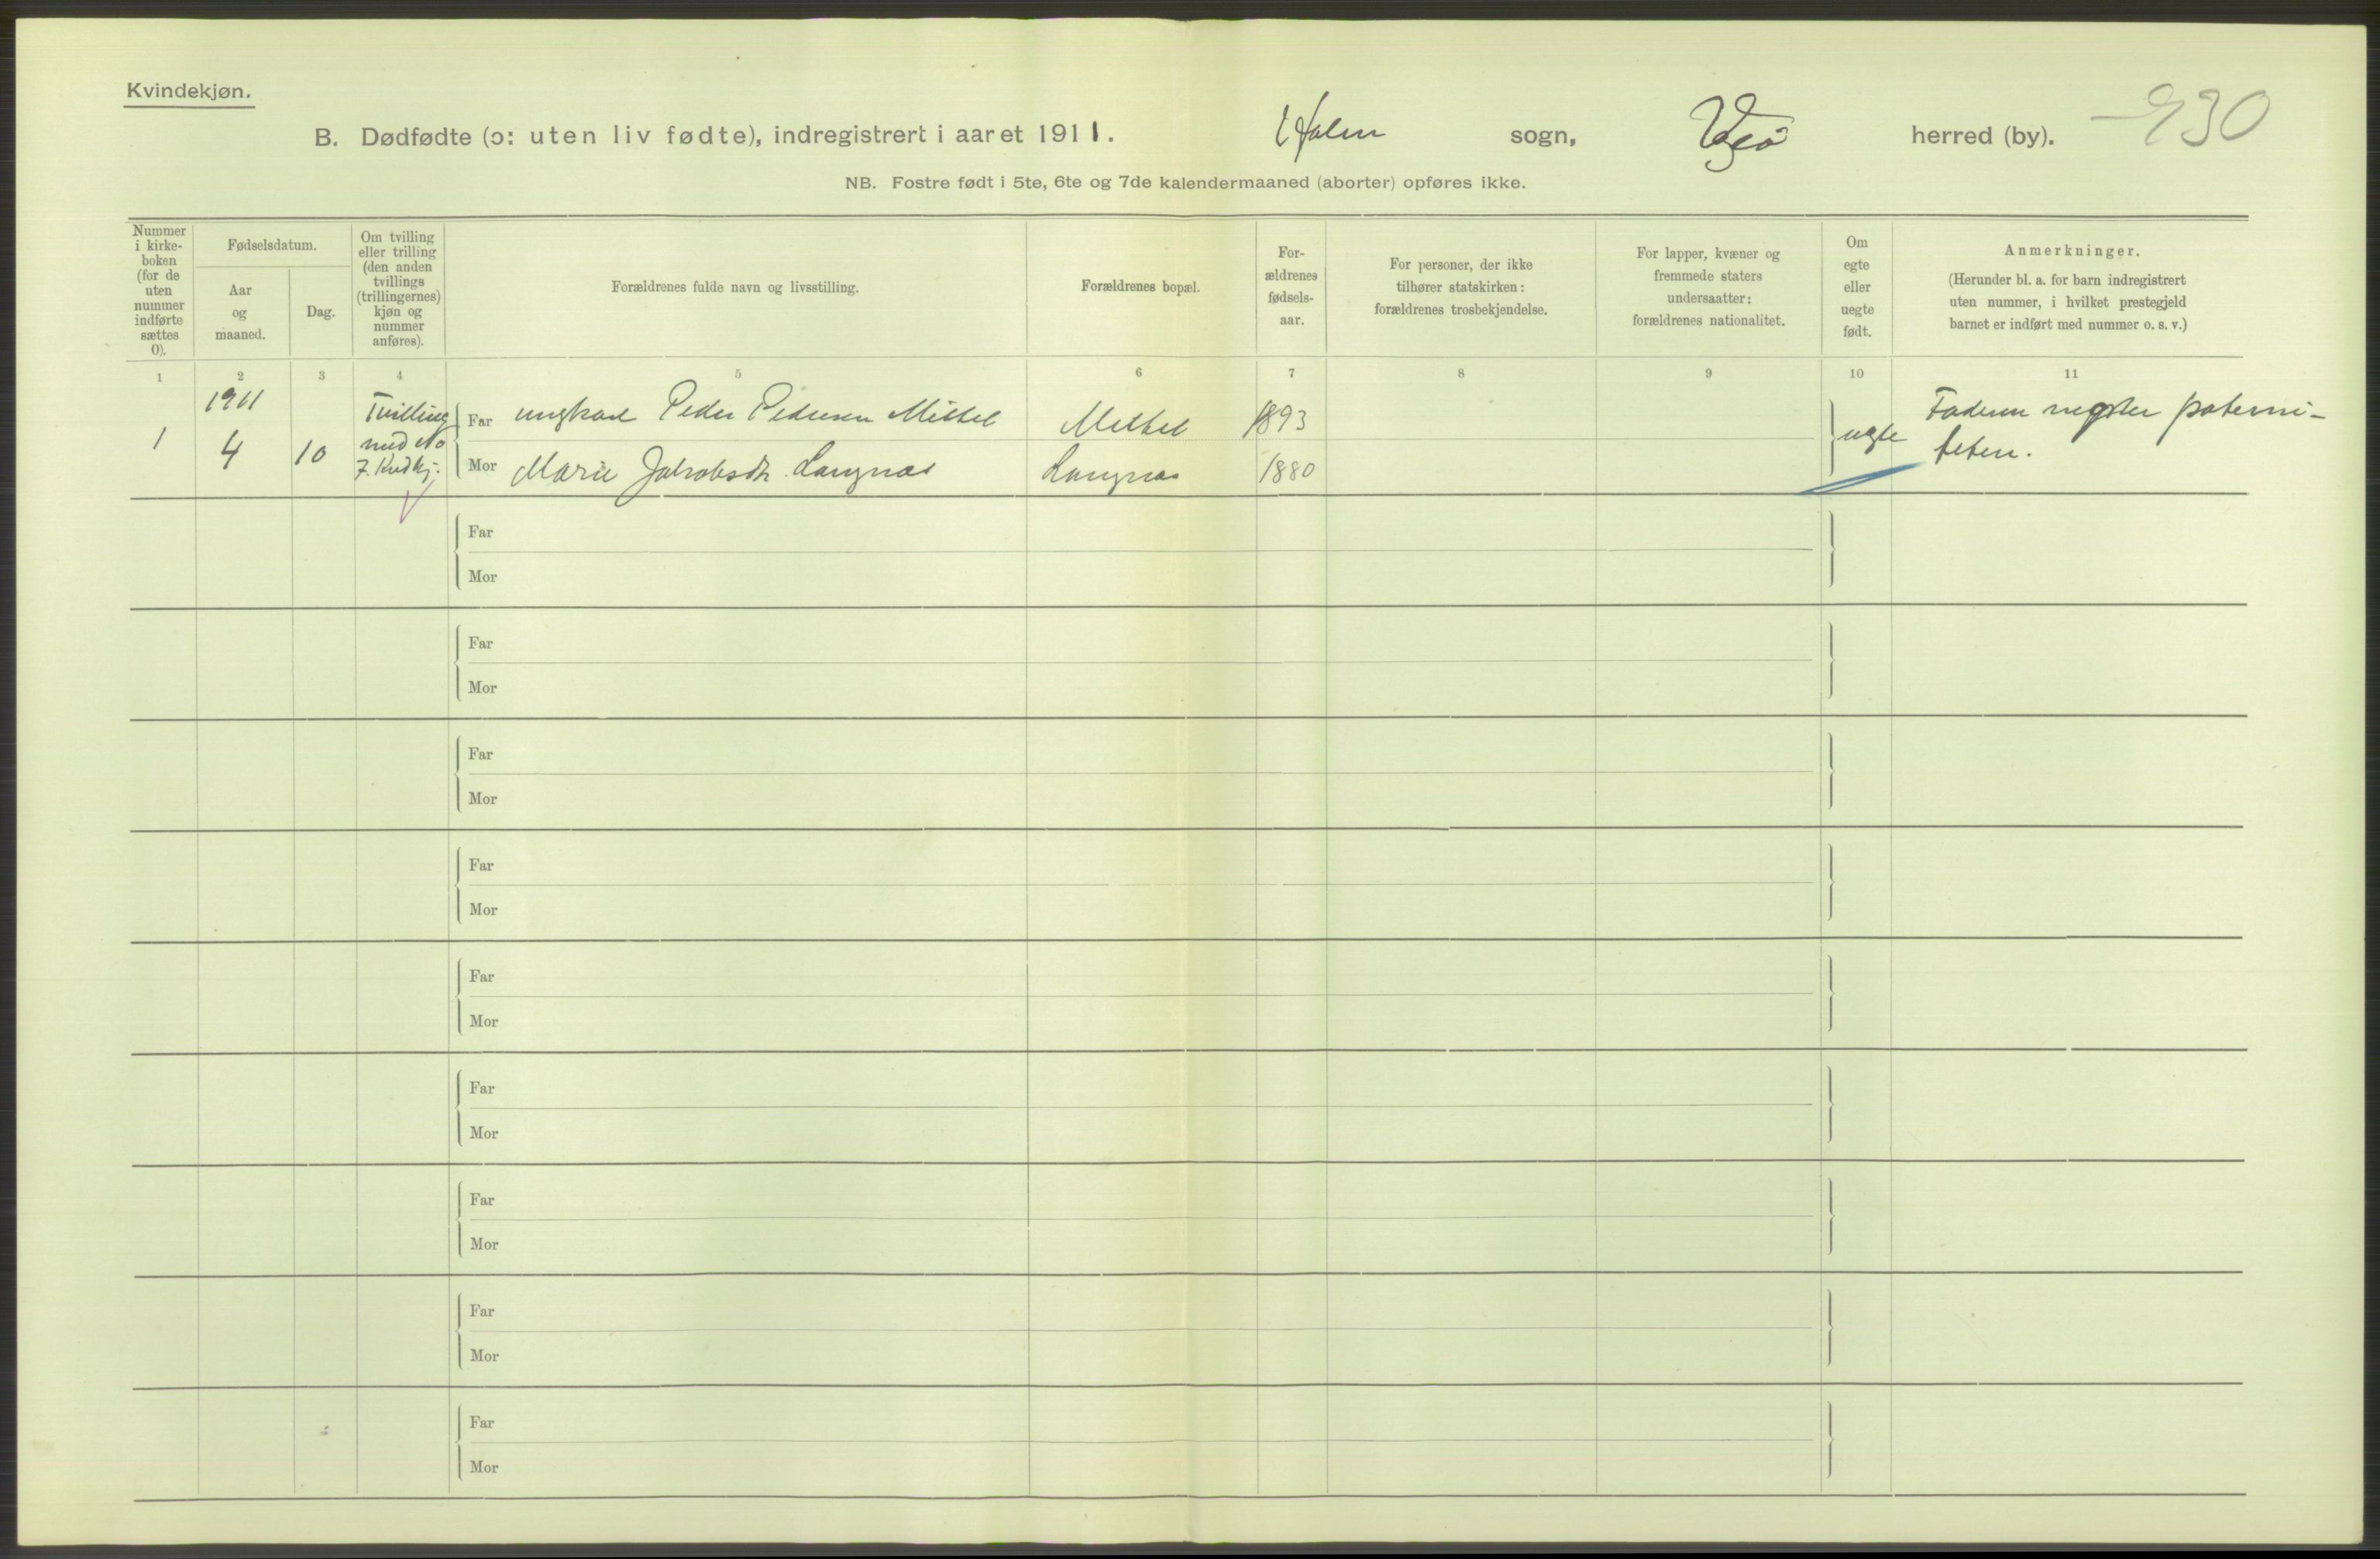 Kvindekjøn.
B. Dødfødte (ɔ: uten liv fødte), indregistrert i aaret 1911. Holm sogn, Veø herred (by). 930
NB. Fostre født i 5te, 6te og 7de kalendermaaned (aborter) opføres ikke.
Nummer i kirke- boken (for de uten nummer indførte sættes 0).
Fødselsdatum.
Aar og maaned.
Dag.
Om tvilling eller trilling (den anden tvillings (trillingernes) kjøn og nummer anføres).
Forældrenes fulde navn og livsstilling.
Forældrenes bopæl.
For- ældrenes fødsels- aar.
For personer, der ikke tilhører statskirken: forældrenes trosbekjendelse.
For lapper, kvæner og fremmede staters undersaatter: forældrenes nationalitet.
Om egte eller uegte født.
Anmerkninger.
(Herunder bl. a. for barn indregistrert uten nummer, i hvilket prestegjeld barnet er indført med nummer o. s. v.)
1 2 3 4 5 6 7 8 9 10 11
1 1911 4 10 Tvilling med No 7. Kvdkj.
Far ungkarl Peder Pedersen Mittet Mittet 1893
Mor Marie Jakobsdtr. Langnes Langnes 1880
uegte Faderen negter paterni-
teten.
Far
Mor
Far
Mor
Far
Mor
Far
Mor
Far
Mor
Far
Mor
Far
Mor
Far
Mor
Far
Mor